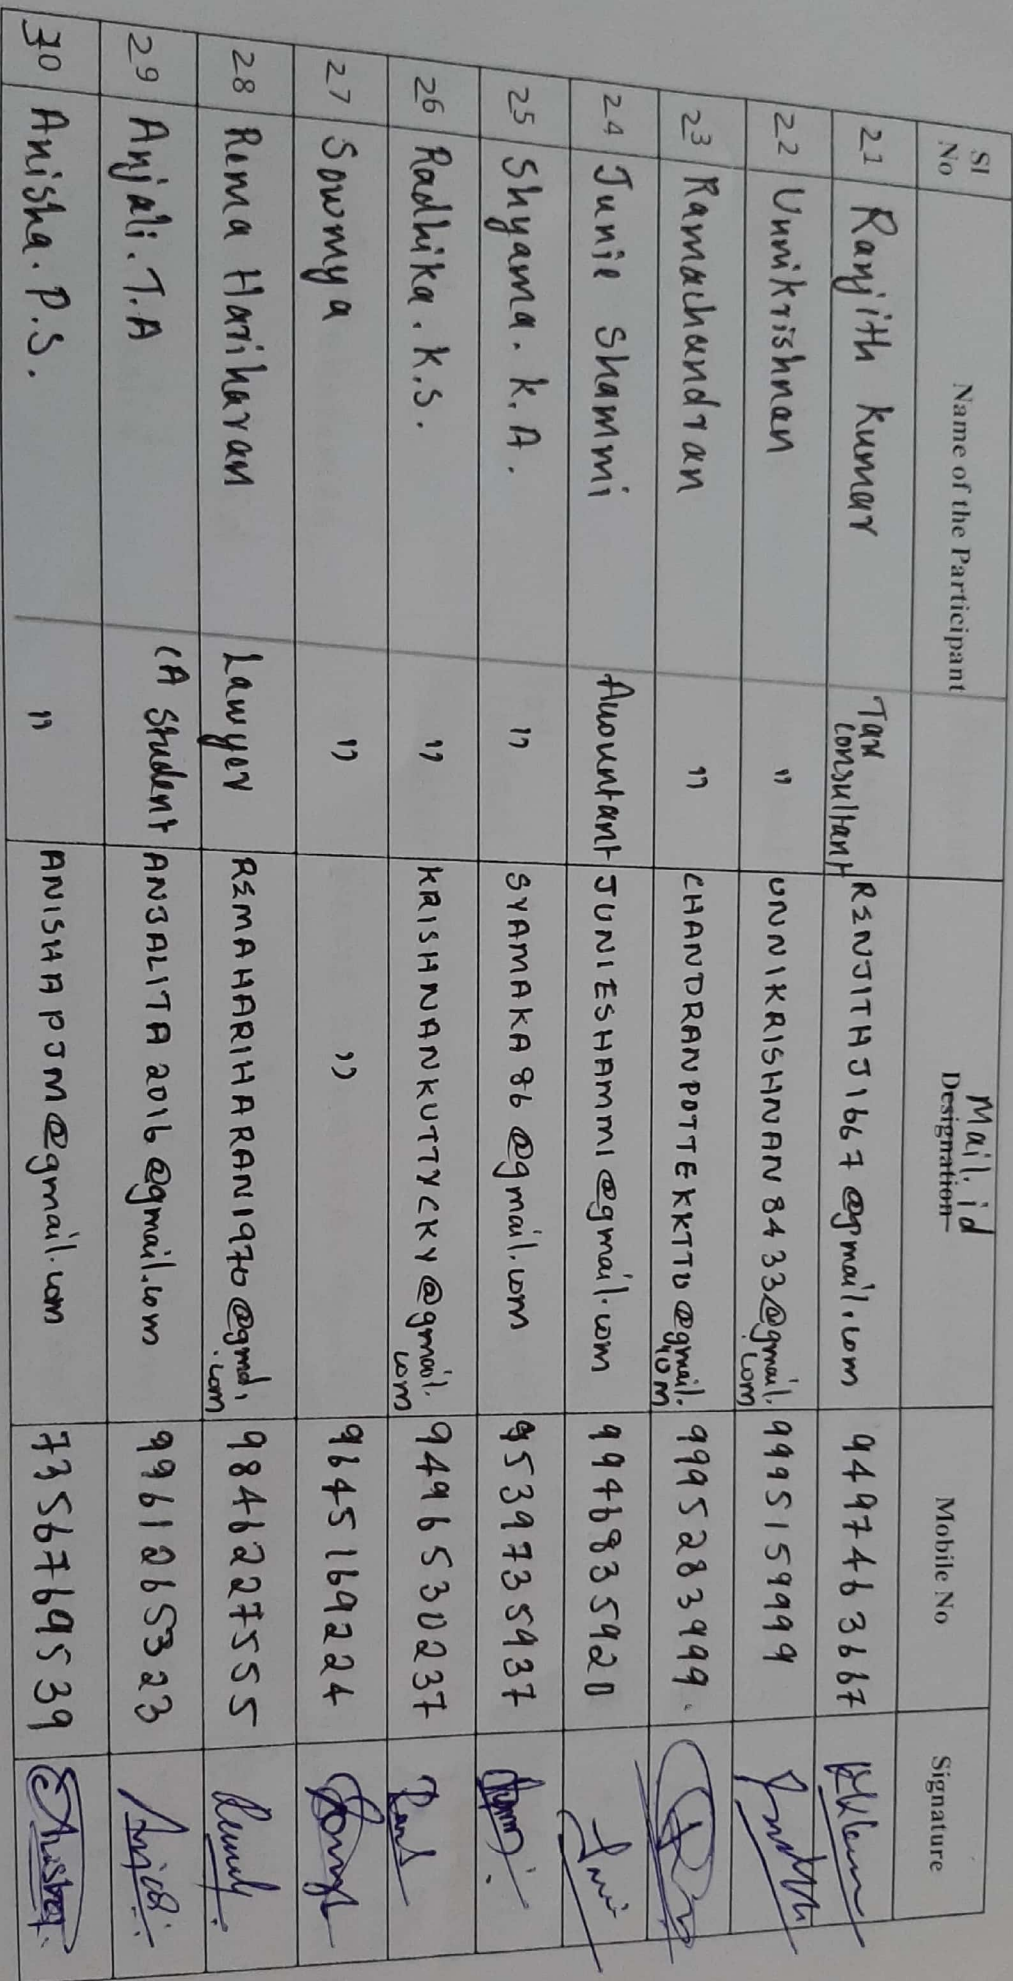 Sl No Name of the Participant Mail.id Designation Mobile No Signature
21 Ranjith Kumar Tax consultant RENJITHJ1667@gmail.com 9497463667
22 Unnikrishnan " UNNIKRISHNAN8433@gmail.com 9995159999
23 Ramachandran " CHANDRANPOTTEKKTTD@gmail.com 9995283999.
24 Junie Shammi Accountant JUNIESHAMMI@gmail.com 9946835920
25 Shyama. K.A. " SYAMAKA86@gmail.com 9539735937
26 Radhika. K.S. " KRISHNANKUTTYCKY@gmail.com 9496530237
27 Sowmya " " 9645169224
28 Rema Hariharan Lawyer REMAHARIHARAN1970@gmail.com 9846227555
29 Anjali.T.A CA student ANJALITA2016@gmail.com 9961265323
30 Anisha. P.S. " ANISHAPJM@gmail.com 7356769539